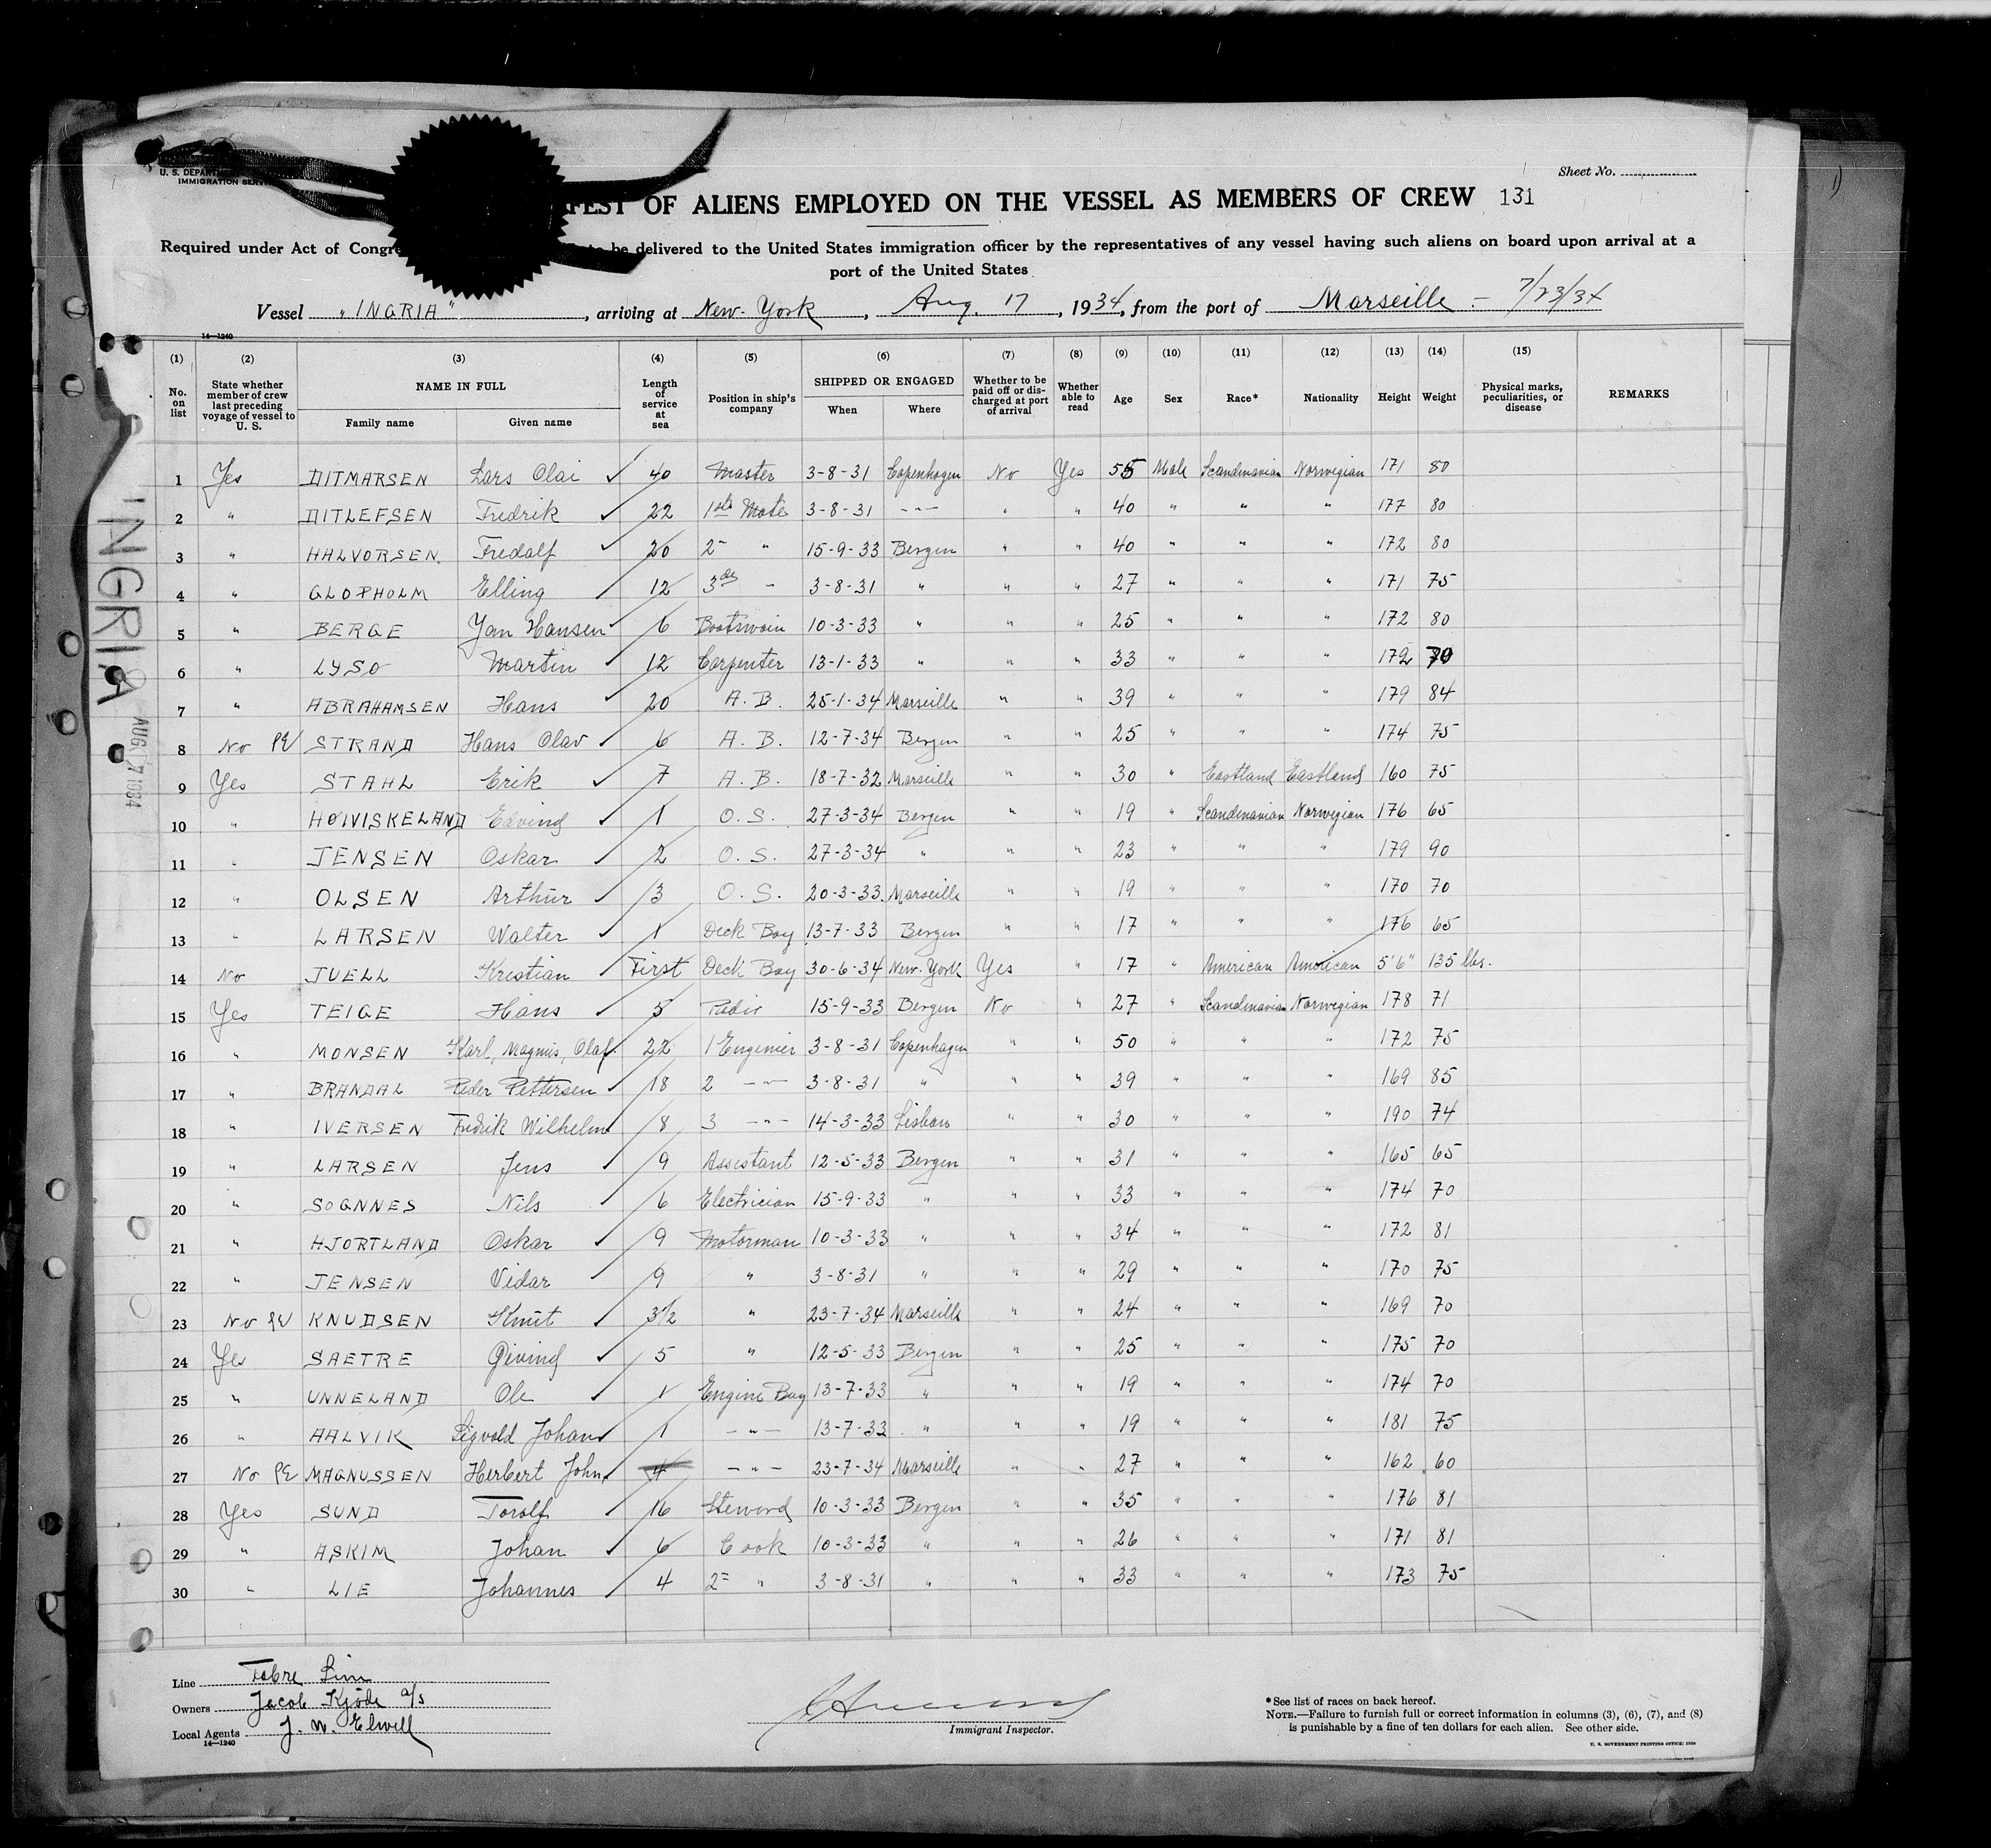 U. S. DEPART
IMMIGRATION SERV
Sheet No.
FEST OF ALIENS EMPLOYED ON THE VESSEL AS MEMBERS OF CREW 131
Required under Act of Congre to be delivered to the United States immigration officer by the representatives of any vessel having such aliens on board upon arrival at a
port of the United States
Vessel "INGRIA", arriving at New-York, Aug. 17, 1934, from the port of Marseille - 7/23/34
14—1240
(1) (2) (3) (4) (5) (6) (7) (8) (9) (10) (11) (12) (13) (14) (15)
No. on list State whether member of crew last preceding voyage of vessel to U. S. NAME IN FULL Family name Given name Length of service at sea Position in ship's company SHIPPED OR ENGAGED When Where Whether to be paid off or discharged at port of arrival Whether able to read Age Sex Race* Nationality Height Weight Physical marks, peculiarities, or disease REMARKS
1 Yes DITMARSEN Lars Olai ✓ 40 Master 3-8-31 Copenhagen No Yes 55 Male Scandinavian Norwegian 171 80
2 " DITLEFSEN Fredrik ✓ 22 1ste Mate 3-8-31 -"- " " 40 " " " 177 80
3 " HALVORSEN. Fredolf ✓ 20 2- " 15-9-33 Bergen " " 40 " " " 172 80
4 " GLOPHOLM Elling ✓ 12 3de - 3-8-31 " " " 27 " " " 171 75
5 " BERGE Jan Hansen ✓ 6 Boatswain 10-3-33 " " " 25 " " " 172 80
6 " LYSO Martin ✓ 12 Carpenter 13-1-33 " " " 33 " " " 172 70
7 " ABRAHAMSEN Hans ✓ 20 A. B. 25-1-34 Marseille " " 39 " " " 179 84
8 No STRAND Hans Olav ✓ 6 A. B. 12-7-34 Bergen " " 25 " " " 174 75
9 Yes STAHL Erik ✓ 7 A. B. 18-7-32 Marseille " " 30 " Eastland Eastland 160 75
10 " HØIVISKELAND ✓ 1 O. S. 27-3-34 Bergen " " 19 " Scandinavian Norwegian 176 65
11 " JENSEN Oskar ✓ 2 O. S. 27-3-34 " " " 23 " " " 179 90
12 " OLSEN Arthur ✓ 3 O. S. 20-3-33 Marseille " " 19 " " " 170 70
13 " LARSEN Walter ✓ 1 Deck Boy 13-7-33 Bergen " " 17 " " " 176 65
14 No JUELL Kristian ✓ First Deck Boy 30-6-34 New-York Yes " 17 " American American 5'6" 135 lbs.
15 Yes TEIGE Hans ✓ 5 Radio 15-9-33 Bergen No " 27 " Scandinavian Norwegian 178 71
16 " MONSEN Karl, Magnus, Olaf. 22 1 Enginier 3-8-31 Copenhagen " " 50 " " " 172 75
17 " BRANDAL Peder Pettersen ✓ 18 2 -"- 3-8-31 " " " 39 " " " 169 85
18 " IVERSEN Fredrik Wilhelm 8 3 -"- 14-3-33 Lisbon " " 30 " " " 190 74
19 " LARSEN Jens ✓ 9 Assistant 12-5-33 Bergen " " 31 " " " 165 65
20 " SOGNNES Nils ✓ 6 Electrician 15-9-33 " " " 33 " " " 174 70
21 " HJORTLAND Oskar ✓ 9 Motorman 10-3-33 " " " 34 " " " 172 81
22 " JENSEN Vidar ✓ 9 " 3-8-31 " " " 29 " " " 170 75
23 No KNUDSEN Knut ✓ 3½ " 23-7-34 Marseille " " 24 " " " 169 70
24 Yes SAETRE Øivind ✓ 5 " 12-5-33 Bergen " " 25 " " " 175 70
25 " UNNELAND Ole ✓ 1 Engine Boy 13-7-33 " " " 19 " " " 174 70
26 " AALVIK Sigvold Johan ✓ 1 -"- 13-7-33 " " " 19 " " " 181 75
27 No MAGNUSSEN Herbert John 4 -"- 23-7-34 Marseille " " 27 " " " 162 60
28 Yes SUND Torolf ✓ 16 Steward 10-3-33 Bergen " " 35 " " " 176 81
29 " ASKIM Johan ✓ 6 Cook 10-3-33 " " " 26 " " " 171 81
30 " LIE Johannes ✓ 4 2= " 3-8-31 " " " 33 " " " 173 75
INGRIA
AUG 17 1934
Line Fabre Line
Owners Jacob Kjøde a/s
Local Agents J. W. Elwell
14—1240
Immigrant Inspector.
* See list of races on back hereof.
NOTE.—Failure to furnish full or correct information in columns (3), (6), (7), and (8)
is punishable by a fine of ten dollars for each alien. See other side.
U. S. GOVERNMENT PRINTING OFFICE: